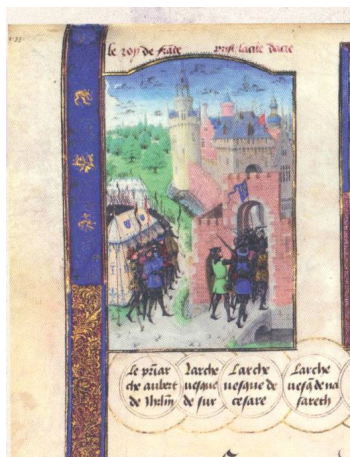 le roy de frāce prīst la cite dacre
le priar
che aubert
de Jhrlm
Larche
uesque
de sur
Larche
uesque de
cesare
Larche
uesq̄ de na
fareth